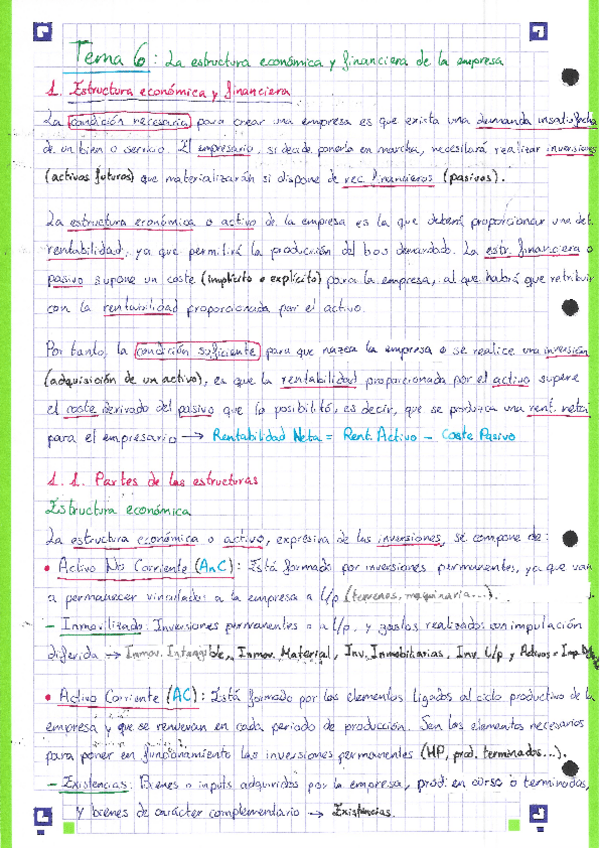 Tema 6: La estructura económica y financiera de la empresa
1. Estructura económica y financiera
La condición necesaria para crear una empresa es que exista una demanda insatisfecha
de un bien o servicio. El empresario, si decide ponerlo en marcha, necesitará realizar inversiones
(activos futuros) que materializarán si dispone de rec. financieros (pasivos).
La estructura económica o activo de la empresa es la que deberá proporcionar una det.
rentabilidad, ya que permitirá la producción del demandado. La estr. financiera o
pasivo supone un coste (implícito o explícito) para la empresa, al que habrá que retribuir
con la rentabilidad proporcionada por el activo.
Por tanto, la condición suficiente para que nazca la empresa o se realice una inversión
(adquisición de un activo), es que la rentabilidad proporcionada por el activo supere
el coste derivado del pasivo que la posibilitó, es decir, que se produzca una rent. neta
para el empresario → Rentabilidad Neta = Rent. Activo - Coste Pasivo
1.1. Partes de las estructuras
Estructura económica
La estructura económica o activo, expresiva de las inversiones, se compone de:
• Activo No Corriente (AnC): Está formado por inversiones permanentes, ya que van
a permanecer vinculadas a la empresa a l/p (terrenos, maquinaria...).
- Inmovilizado: Inversiones permanentes o a l/p, y gastos realizados con imputación
diferida → Inmov. Intangible, Inmov. Material, Inv. Inmobiliarias, Inv. l/p y Activos x Imp. Dif
• Activo Corriente (AC): Está formado por los elementos ligados al ciclo productivo de la
empresa y que se renuevan en cada periodo de producción. Son los elementos necesarios
para poner en funcionamiento las inversiones permanentes (MP, prod. terminados...).
- Existencias: Bienes o inputs adquiridos por la empresa, prod. en curso o terminados,
y bienes de carácter complementario → Existencias.